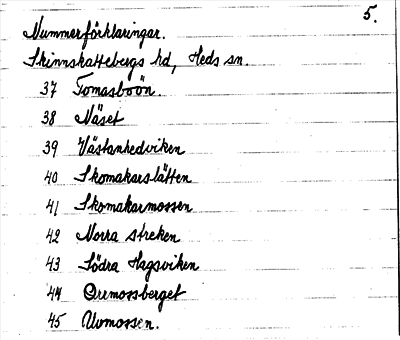 5.
Nummerförklaringar.
Skinnskattebergs hd, Heds sn.
37 Tomasboön.
38 Näset
39 Västanhedviken
40 Skomakarslätten
41 Skomakarmossen
42 Norra streken
43 Södra Hagsviken
44 Orrmossberget
45 Uvmossen.